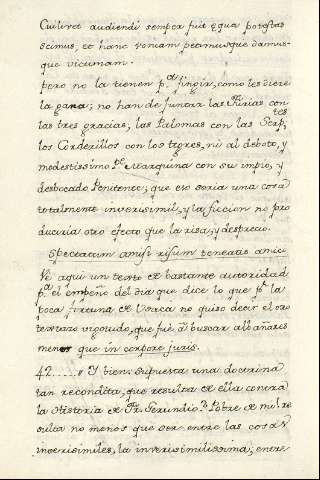 Cuilivet audiendi semper fuit equa potestas
scimus, et hanc veniam petimusque damus-
que vicissim.
pero no la tienen p.ª fingir, como les diere
la gana; no han de juntar las Furias con
las tres gracias, las Palomas con las Serp.tes
los Corderillos con los tigres, ni al debato, y
modestissimo P.e Marquina con su impio, y
desbocado Penitente; que eso seria una cosa
totalmente inverisimil, y la ficcion no pro
duciria otro efecto que la risa, y desprecio.
Spectatum amisi risum teneatis amici
Ve aqui un texto de bastante autoridad
p.ª el empeño del dia que dice lo que p.r la
poca fortuna de no quiso decir el otro
textazo vigorudo, que fue à buscar albañares
menos que in corpore juris.
42..... Y bien: supuesta una doctrina
tan recondita, que resulta de ella contra
la Historia de Fr. Gerundio? Pobre de mi! re
sulta no menos que ser entre las cosas
inverisimiles, la inverisimilissima; entre